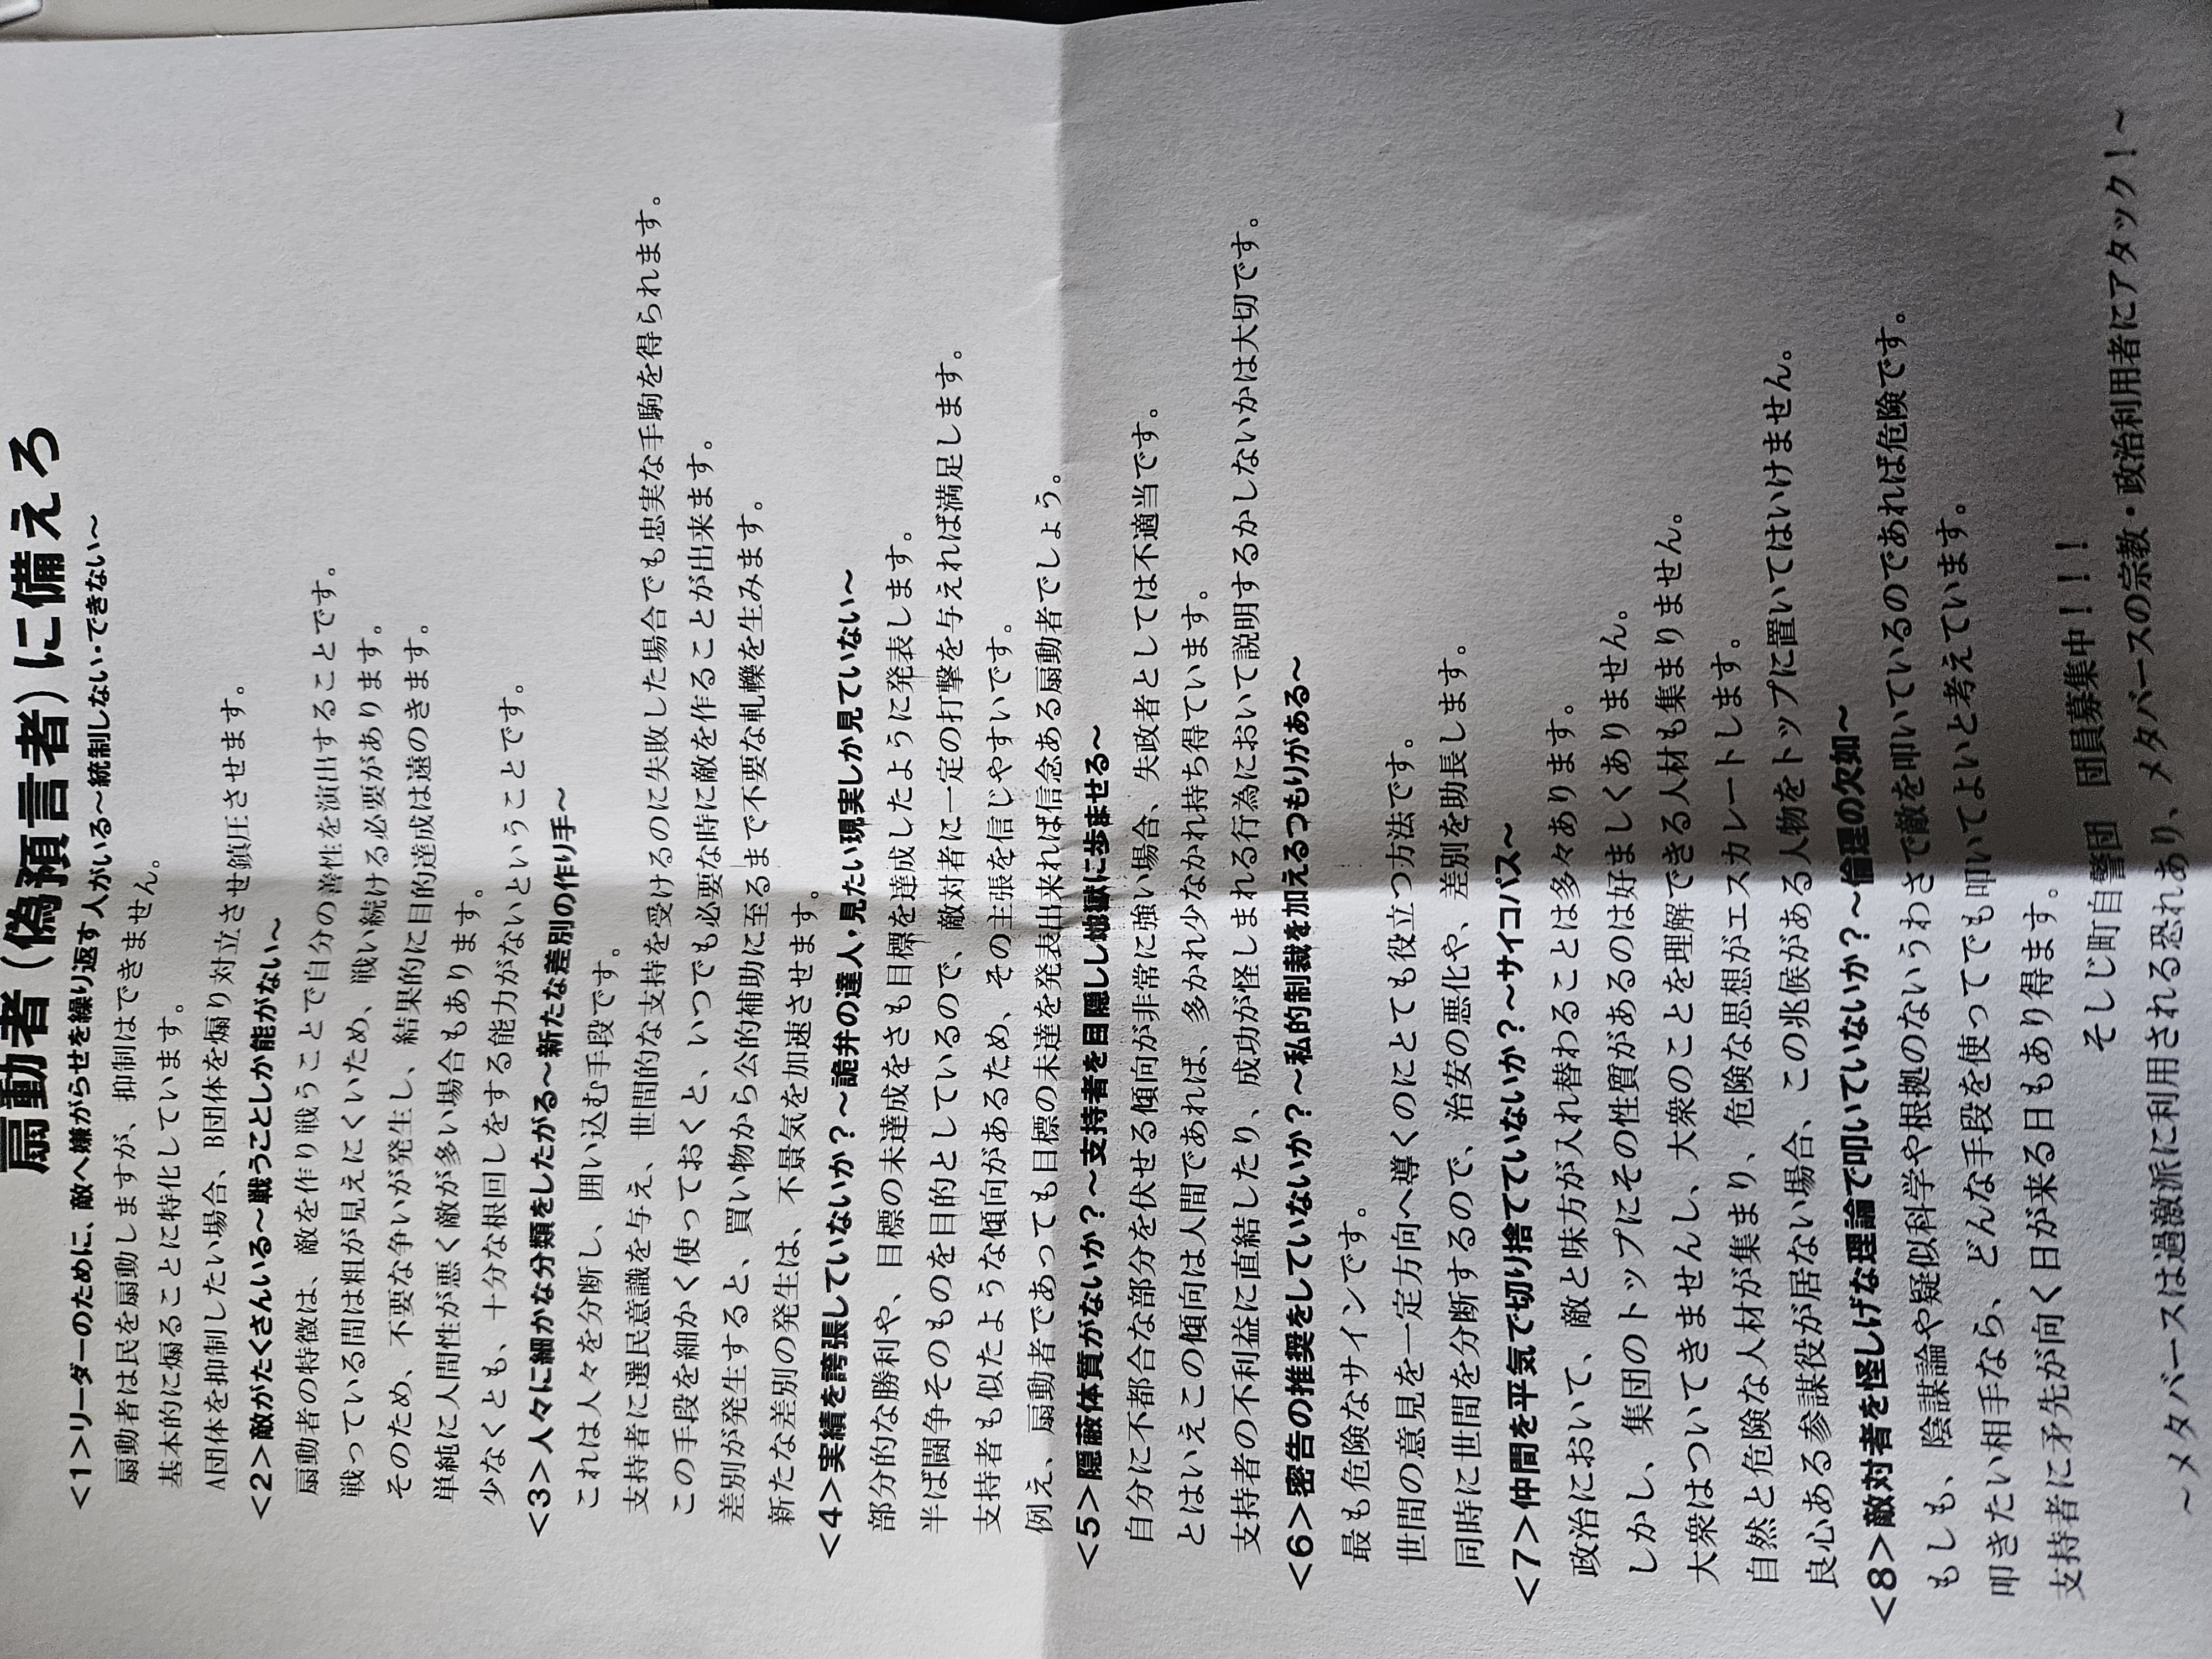 扇動者（偽預言者）に備えろ
<1>リーダーのために、敵へ嫌がらせを繰り返す人がいる～統制しない・できない～
扇動者は民を扇動しますが、抑制はできません。
基本的に煽ることに特化しています。
A団体を抑制したい場合、B団体を煽り対立させ鎮圧させます。
<2>敵がたくさんいる～戦うことしか能がない～
扇動者の特徴は、敵を作り戦うことで自分の善性を演出することです。
戦っている間は粗が見えにくいため、戦い続ける必要があります。
そのため、不要な争いが発生し、結果的に目的達成は遠のきます。
単純に人間性が悪く敵が多い場合もあります。
少なくとも、十分な根回しをする能力がないということです。
<3>人々に細かな分類をしたがる～新たな差別の作り手～
これは人々を分断し、囲い込む手段です。
支持者に選民意識を与え、世間的な支持を受けるのに失敗した場合でも忠実な手駒を得られます。
この手段を細かく使っておくと、いつでも必要な時に敵を作ることが出来ます。
差別が発生すると、買い物から公的補助に至るまで不要な軋轢を生みます。
新たな差別の発生は、不景気を加速させます。
<4>実績を誇張していないか？～詭弁の達人・見たい現実しか見ていない～
部分的な勝利や、目標の未達成をさも目標を達成したように発表します。
半ば闘争そのものを目的としているので、敵対者に一定の打撃を与えれば満足します。
支持者も似たような傾向があるため、その主張を信じやすいです。
例え、扇動者であっても目標の未達を発表出来れば信念ある扇動者でしょう。
<5>隠蔽体質がないか？～支持者を目隠しし地獄に歩ませる～
自分に不都合な部分を伏せる傾向が非常に強い場合、失政者としては不適当です。
とはいえこの傾向は人間であれば、多かれ少なかれ持ち得ています。
支持者の不利益に直結したり、成功が怪しまれる行為において説明するかしないかは大切です。
<6>密告の推奨をしていないか？～私的制裁を加えるつもりがある～
最も危険なサインです。
世間の意見を一定方向へ導くのにとても役立つ方法です。
同時に世間を分断するので、治安の悪化や、差別を助長します。
<7>仲間を平気で切り捨てていないか？～サイコパス～
政治において、敵と味方が入れ替わることは多々あります。
しかし、集団のトップにその性質があるのは好ましくありません。
大衆はついてきませんし、大衆のことを理解できる人材も集まりません。
自然と危険な人材が集まり、危険な思想がエスカレートします。
良心ある参謀役が居ない場合、この兆候がある人物をトップに置いてはいけません。
<8>敵対者を怪しげな理論で叩いていないか？～倫理の欠如～
もしも、陰謀論や疑似科学や根拠のないうわさで敵を叩いているのであれば危険です。
叩きたい相手なら、どんな手段を使ってでも叩いてよいと考えています。
支持者に矛先が向く日が来る日もあり得ます。
そしじ町自警団　団員募集中！！！
～メタバースは過激派に利用される恐れあり、メタバースの宗教・政治利用者にアタック！～